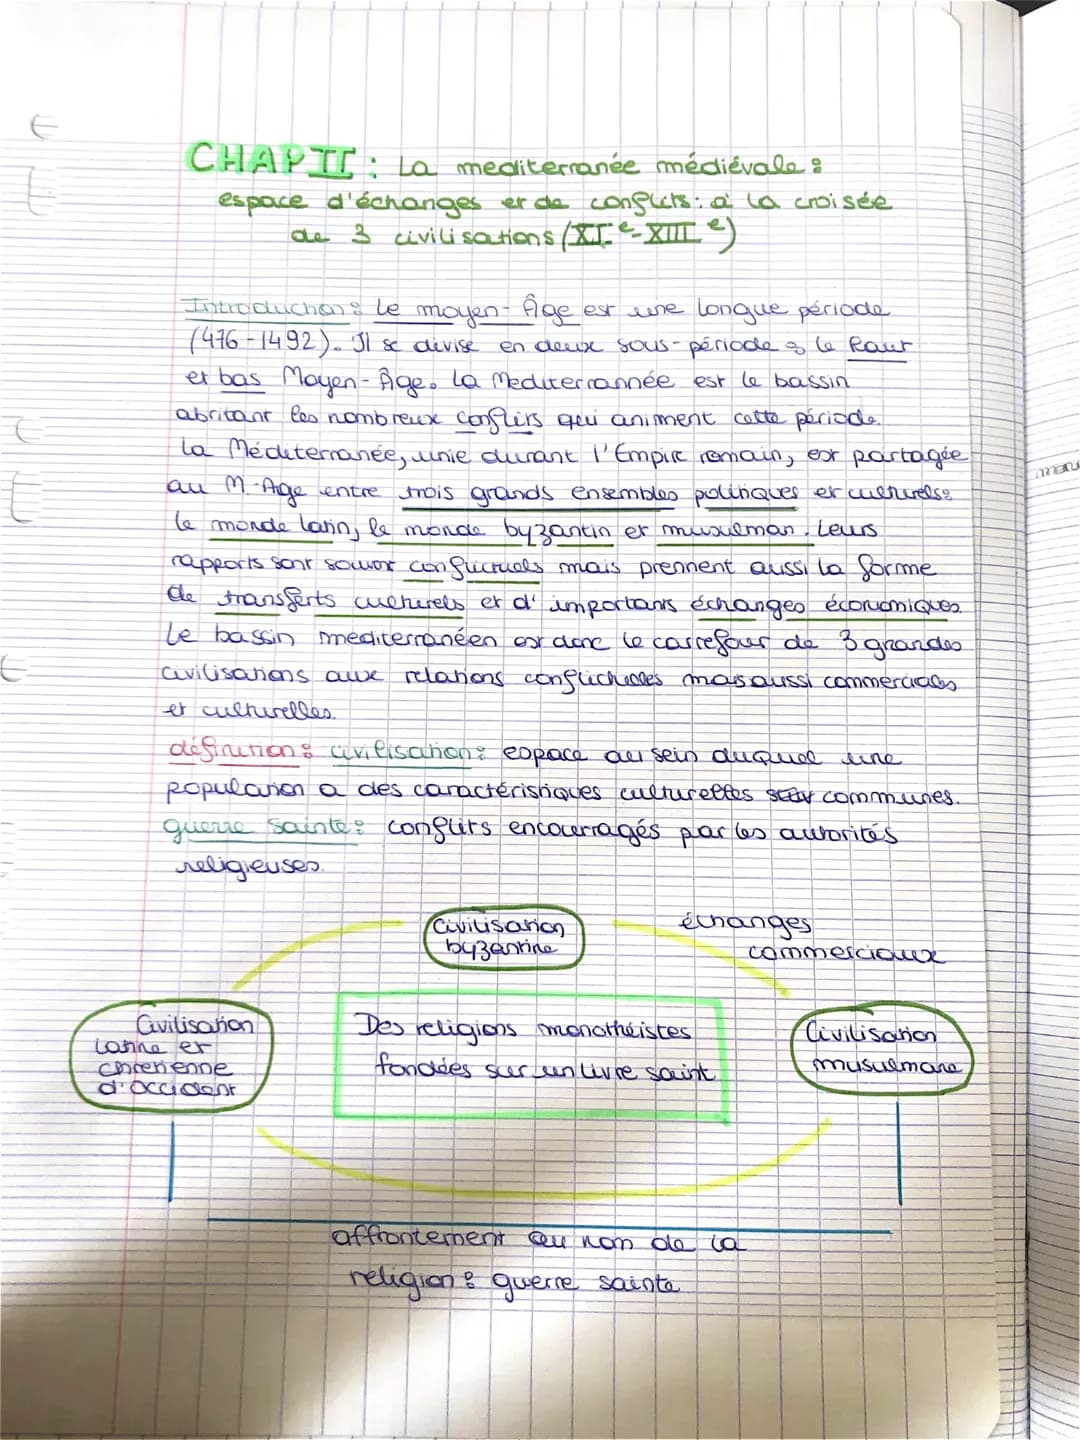 CHAP II : La mediterranée médiévale :
espace d'échanges et de conflits : à la croisée
de 3 civilisations (XI e - XIII e)
Introduction : Le moyen-Âge est une longue période
(476-1492). Il se divise en deux sous-période : le haut
et bas Moyen-Âge. La Mediterrannée est le bassin
abritant les nombreux conflits qui animent cette période.
La Méditerranée, unie durant l'Empire romain, est partagée
au M.-Age entre trois grands ensembles politiques et culturels :
le monde latin, le monde byzantin et musulman. Leurs
rapports sont souvent conflictuels mais prennent aussi la forme
de transferts culturels et d'importants échanges économiques.
Le bassin méditerranéen est donc le carrefour de 3 grandes
civilisations aux relations conflictuelles mais aussi commerciales
et culturelles.
définition : civilisation : espace au sein duquel une
population a des caractéristiques culturelles communes.
guerre sainte : conflits encourragés par les autorités
religieuses.
Civilisation
byzantine
échanges
commerciaux
Civilisation
latine et
chretienne
d'occident
Des religions monothéistes
fondées sur un livre saint
Civilisation
musulmane
affrontement au nom de la
religion : guerre sainte